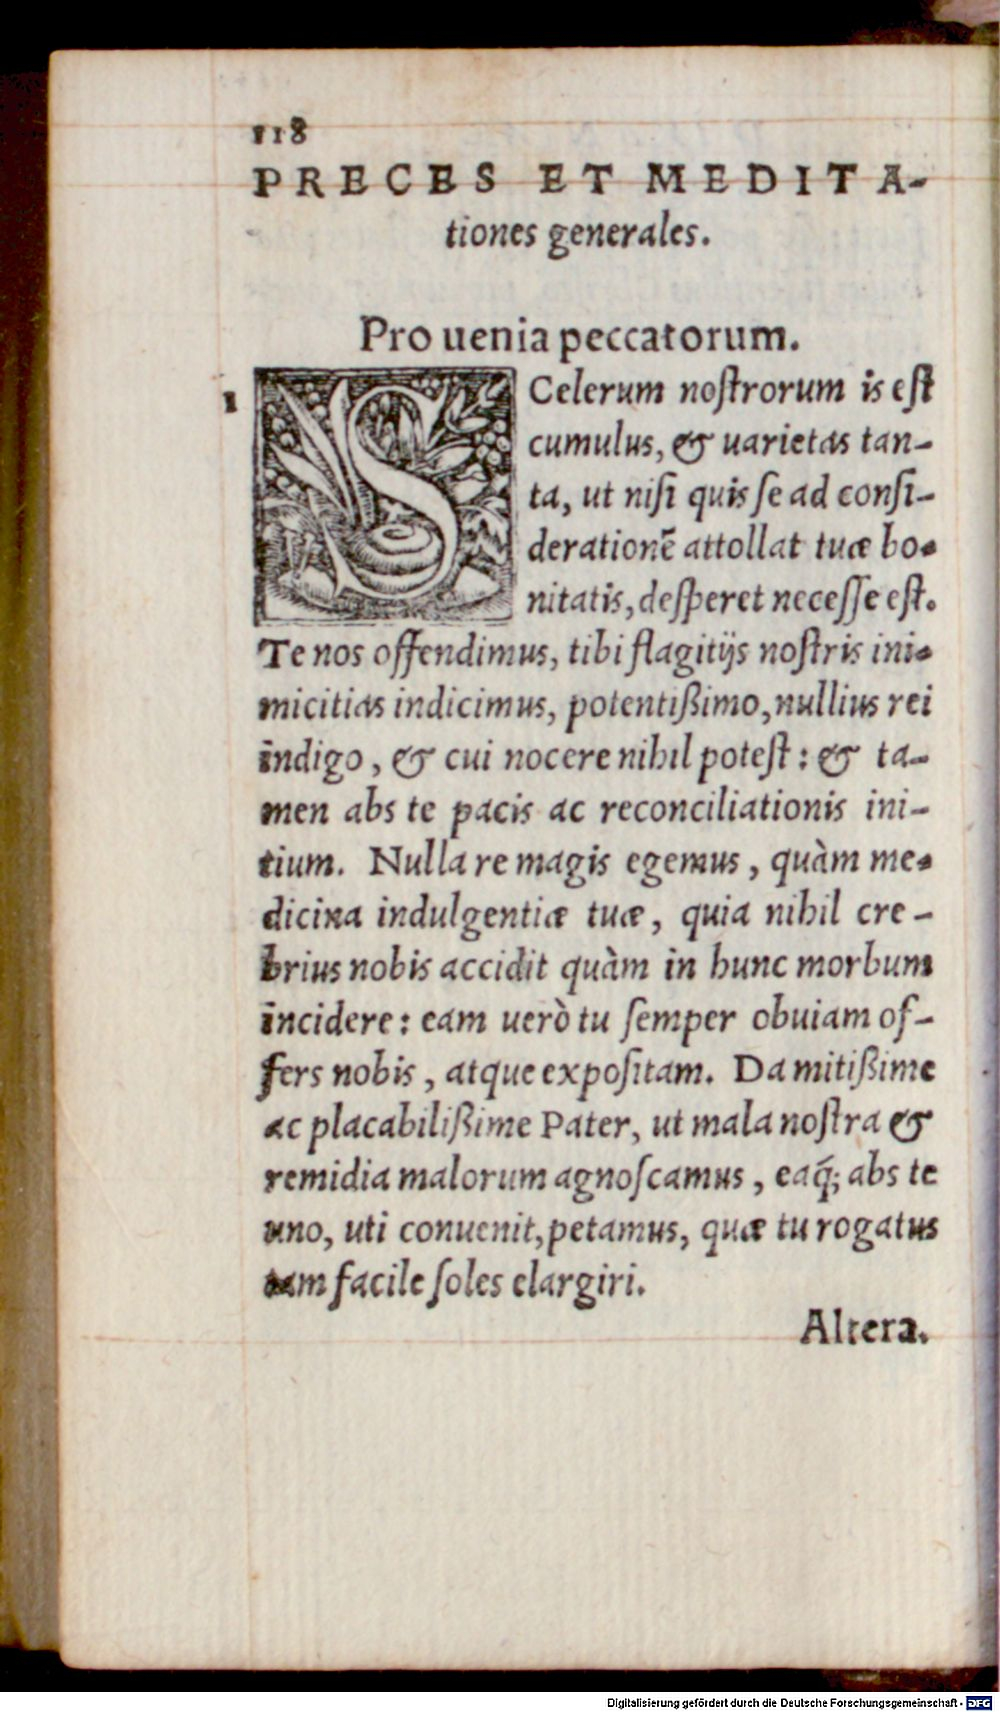 118
PRECES ET MEDITA-
tiones generales.
Pro uenia peccatorum.
1
SCelerum noſtrorum is eſt
cumulus, & uarietas tan-
ta, ut niſi quis ſe ad conſi-
derationē attollat tuæ bo-
nitatis, deſperet neceſſe eſt.
Te nos offendimus, tibi flagitijs noſtris ini-
micitias indicimus, potentißimo, nullius rei
indigo, & cui nocere nihil poteſt: & ta-
men abs te pacis ac reconciliationis ini-
tium. Nulla re magis egemus, quàm me-
dicina indulgentiæ tuæ, quia nihil cre-
brius nobis accidit quàm in hunc morbum
incidere: eam uerò tu ſemper obuiam of-
fers nobis, atque expoſitam. Da mitißime
ac placabilißime Pater, ut mala noſtra &
remidia malorum agnoſcamus, eaq́; abs te
uno, uti conuenit, petamus, quæ tu rogatus
tam facile ſoles elargiri.
Altera.
Digitalisierung gefördert durch die Deutsche Forschungsgemeinschaft - DFG